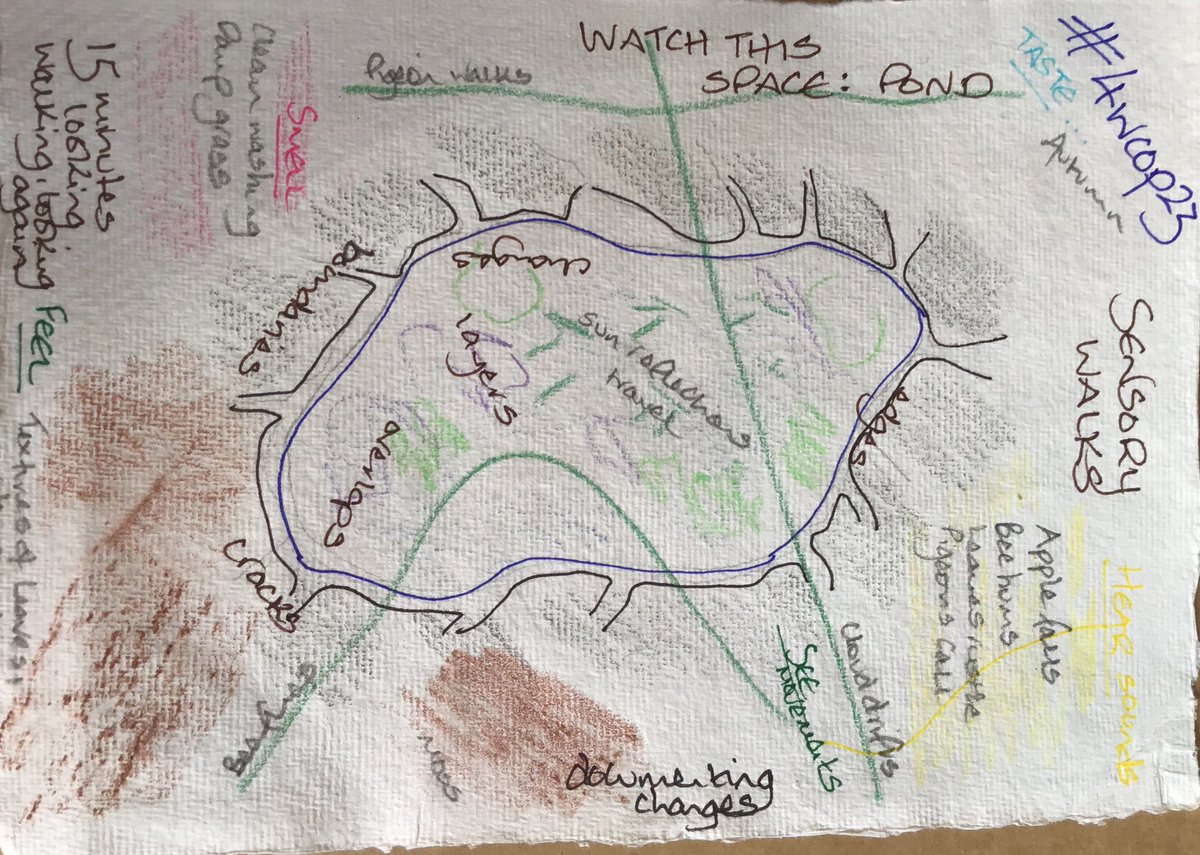 WATCH THIS
SPACE: POND
#4WCOP23
TASTE...
Autumn
Pigeon walks
SMELL
Clean washing
Damp grass
15 minutes
looking
walking, looking
again
FEEL
Textures of Leaves:
SENSORY
WALKS
HEAR sounds
Apple falls
Bee hums
Leaves rustle
Pigeons call
boundaries
changes
layers
overlaps
sun reflections
travel
edges
cracks
SEE
MOVEMENTS
Cloud drifts
documenting
changes